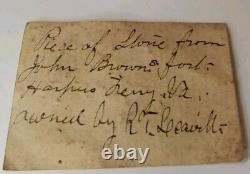 Piece of Stone from
John Browns fort
Harpers Ferry Va.
owned by R. L. Leavitt
www.ebay.com